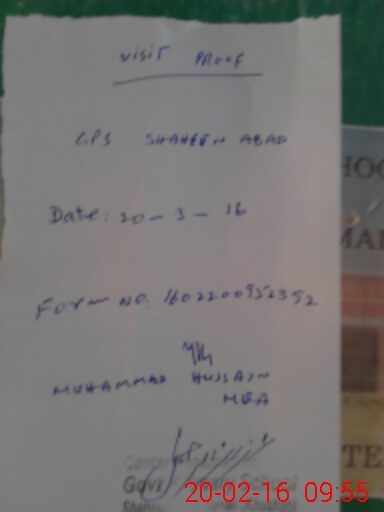 VISIT PROOF
GPS SHAHEEN ABAD
Date: 20-3-16
Form NO. 1602200952352
MUHAMMAD HUSSAIN
MEA
Govt School
20-02-16 09:55
HOO
MAR
TE